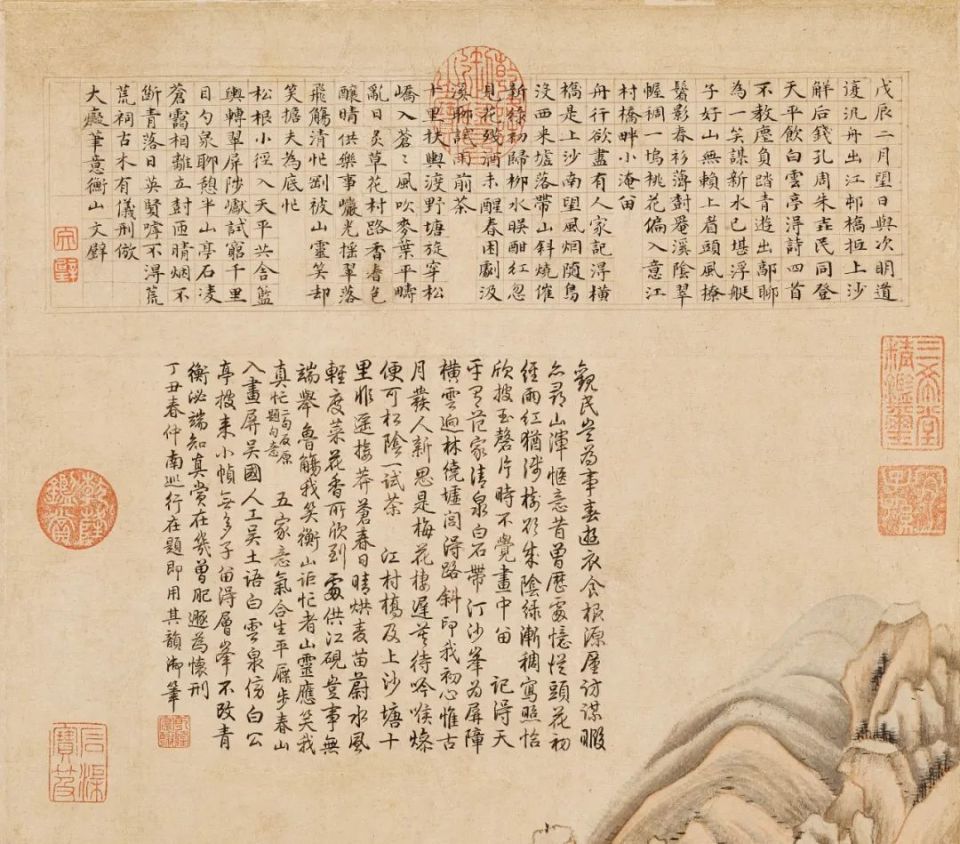 戊辰二月望日與次明道
逺汎舟出江邨橋抵上沙
解后錢孔周朱垚民同登
天平飲白雲亭得詩四首
不教塵負踏青遊出郭聊
為一笑謀新水已堪浮艇
子好山無賴上眉頭風撩
鬢影春衫薄對罨溪陰翠
幄稠一塢桃花偏入意江
村橋畔小淹留
舟行欲盡有人家記得橫
橋是上沙南望風烟隨鳥
沒西来墟落帶山斜燒催
新綠初歸柳水映酣紅忽
見花殘酒未醒春困劇汲
溪聊試雨前茶
十里扶輿渡野塘旋穿松
嶠入蒼〻風吹麥葉平疇
亂日炙草花村路香春色
釀晴供樂事巘光搖翠落
飛觴清忙剛被山靈笑却
笑擔夫為底忙
松根小徑入天平共舍籃
輿轉翠屏陟巘試窮千里
目勺泉聊憩半山亭石凌
蒼靄相離立封匝晴烟不
斷青落日英賢嗟不得荒
荒祠古木有儀刑倣
大癡筆意衡山文壁
觀民豈為事春遊衣食根源屢訪謀暇
亦尋山渾愜意昔曾歷處憶從頭花初
經雨紅猶淺樹欲成陰綠漸稠寫照恰
欣披玉磬片時不覺畫中留 記得天
平有范家清泉白石帶汀沙峯為屏障
橫雲迥林繞墟閭得路斜印我初心惟古
月發人新思是梅花棲遲莫待吟喉燥
便可松陰一試茶 江村橋及上沙塘十
里非遙接莽蒼春日晴烘麦苗蔚水風
輕度菜花香所欣到處供江硯豈事無
端舉魯觴我笑衡山詎忙者山靈應笑我
真忙二句反原題句意 五家意氣合生平屧步春山
入畫屏吳國人工吳土語白雲泉傍白公
亭披来小幀無多子留得層峯不改青
衡泌端知真賞在幾曾肥遯為懷刑
丁丑春仲南巡行在題即用其韻御筆
三希堂精鑑璽
宜子孫
乾隆鑑賞
石渠寶笈